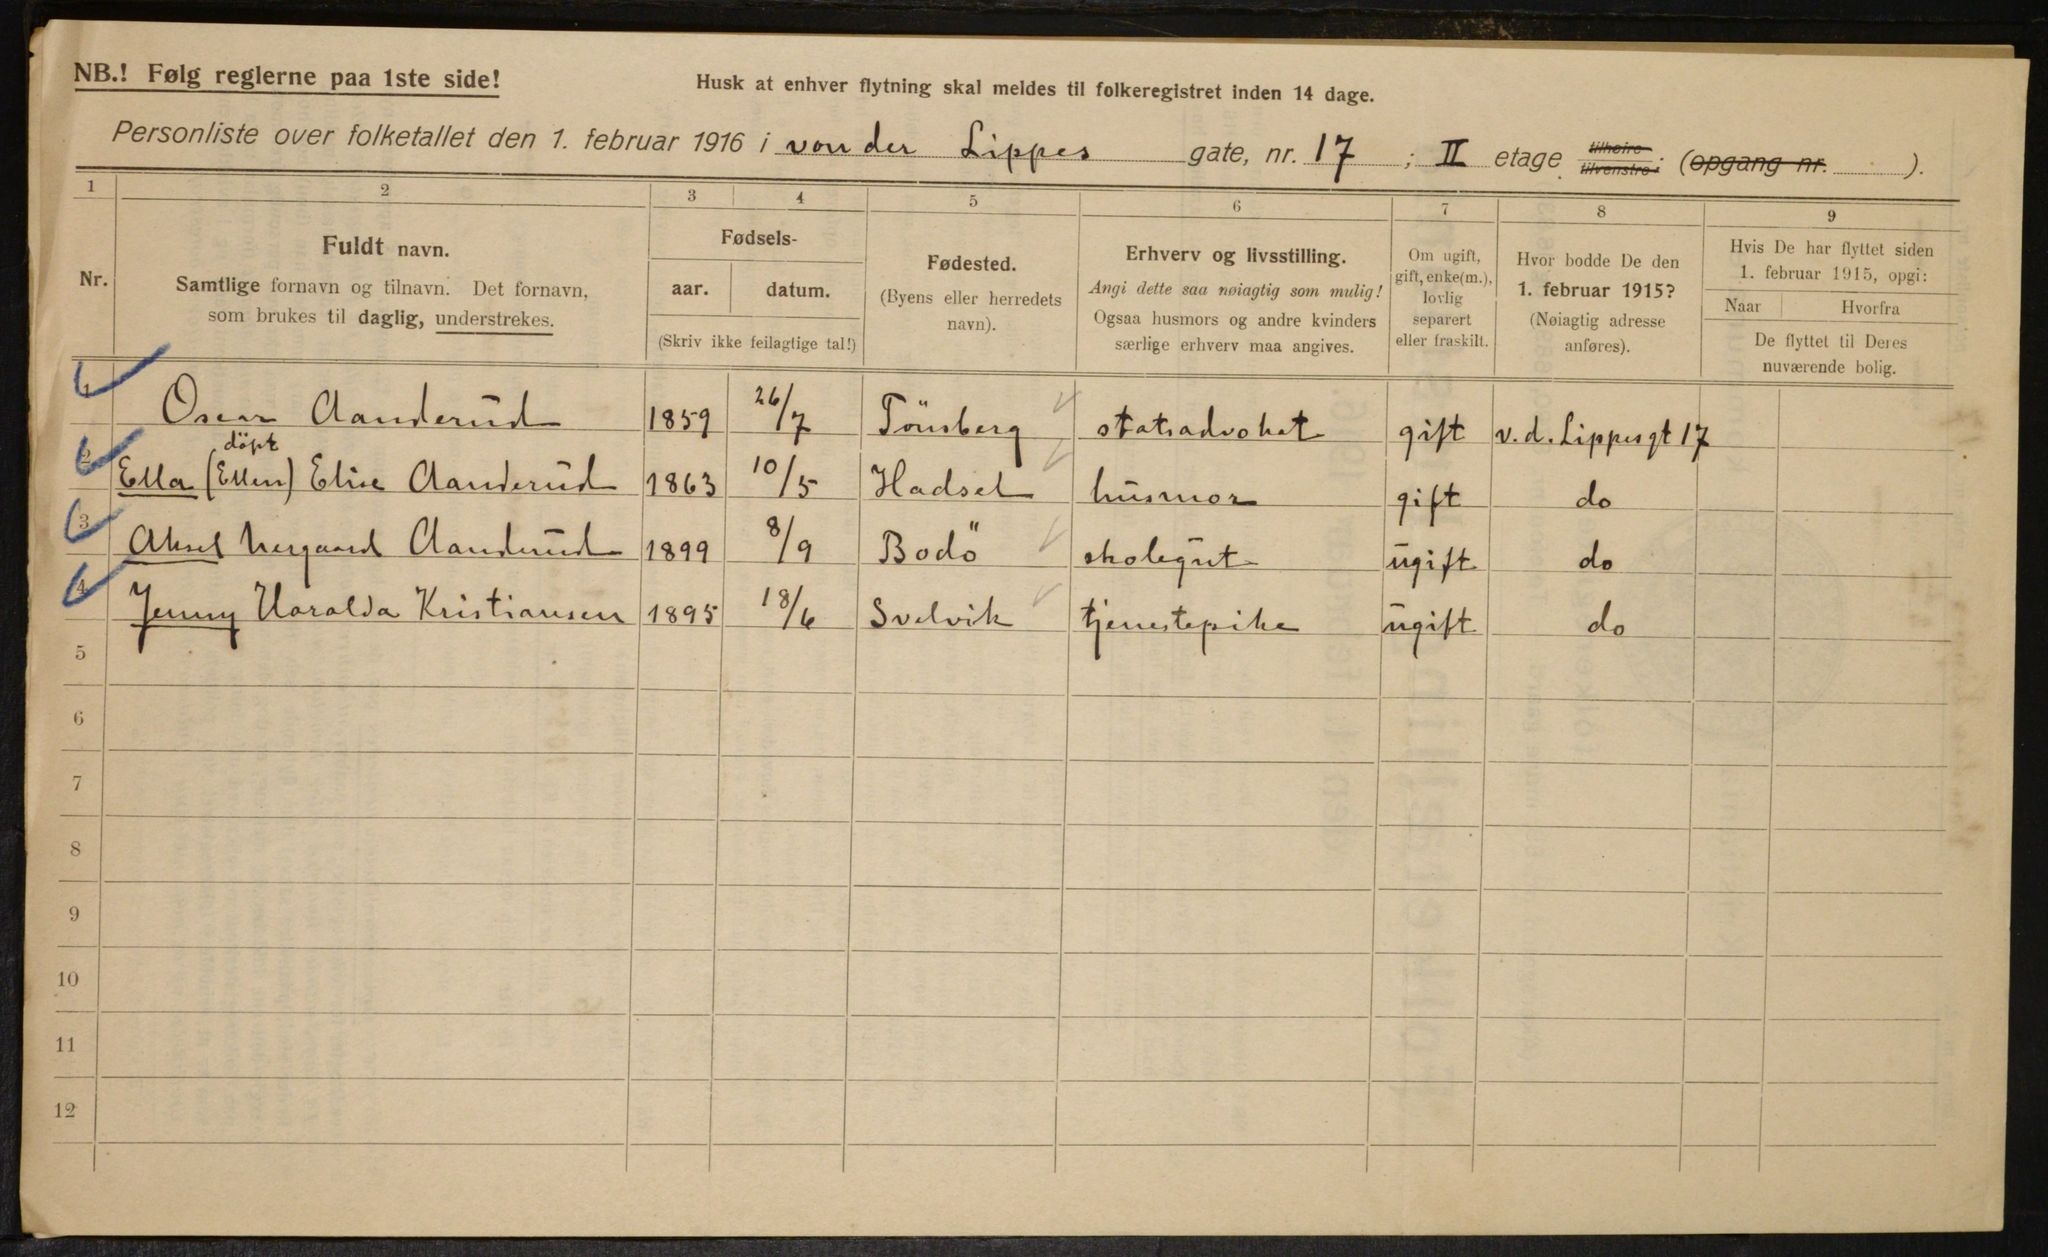 NB.! Følg reglerne paa 1ste side!
Husk at enhver flytning skal meldes til folkeregistret inden 14 dage.
Personliste over folketallet den 1. februar 1916 i von der Lippes gate, nr. 17 ; II etage tilhøire tilvenstre: (opgang nr. ).
1 2 3 4 5 6 7 8 9
Nr.
Fuldt navn.
Samtlige fornavn og tilnavn. Det fornavn,
som brukes til daglig, understrekes.
Fødsels-
aar. datum.
(Skriv ikke feilagtige tal!)
Fødested.
(Byens eller herredets
navn).
Erhverv og livsstilling.
Angi dette saa nøiagtig som mulig!
Ogsaa husmors og andre kvinders
særlige erhverv maa angives.
Om ugift,
gift, enke(m.),
lovlig
separert
eller fraskilt.
Hvor bodde De den
1. februar 1915?
(Nøiagtig adresse
anføres).
Hvis De har flyttet siden
1. februar 1915, opgi:
Naar Hvorfra
De flyttet til Deres
nuværende bolig.
1 Oscar Aanderud 1859 26/7 Tönsberg statsadvokat gift v. d. Lippesgt 17
döpt
2 Ella (Ellen) Elise Aanderud 1863 10/5 Hadsel husmor gift do
3 Aksel Aanderud 1899 8/9 Bodö skolegut ugift do
4 Jenny Haralda Kristiansen 1895 18/6 Svelvik tjenestepike ugift do
5
6
7
8
9
10
11
12